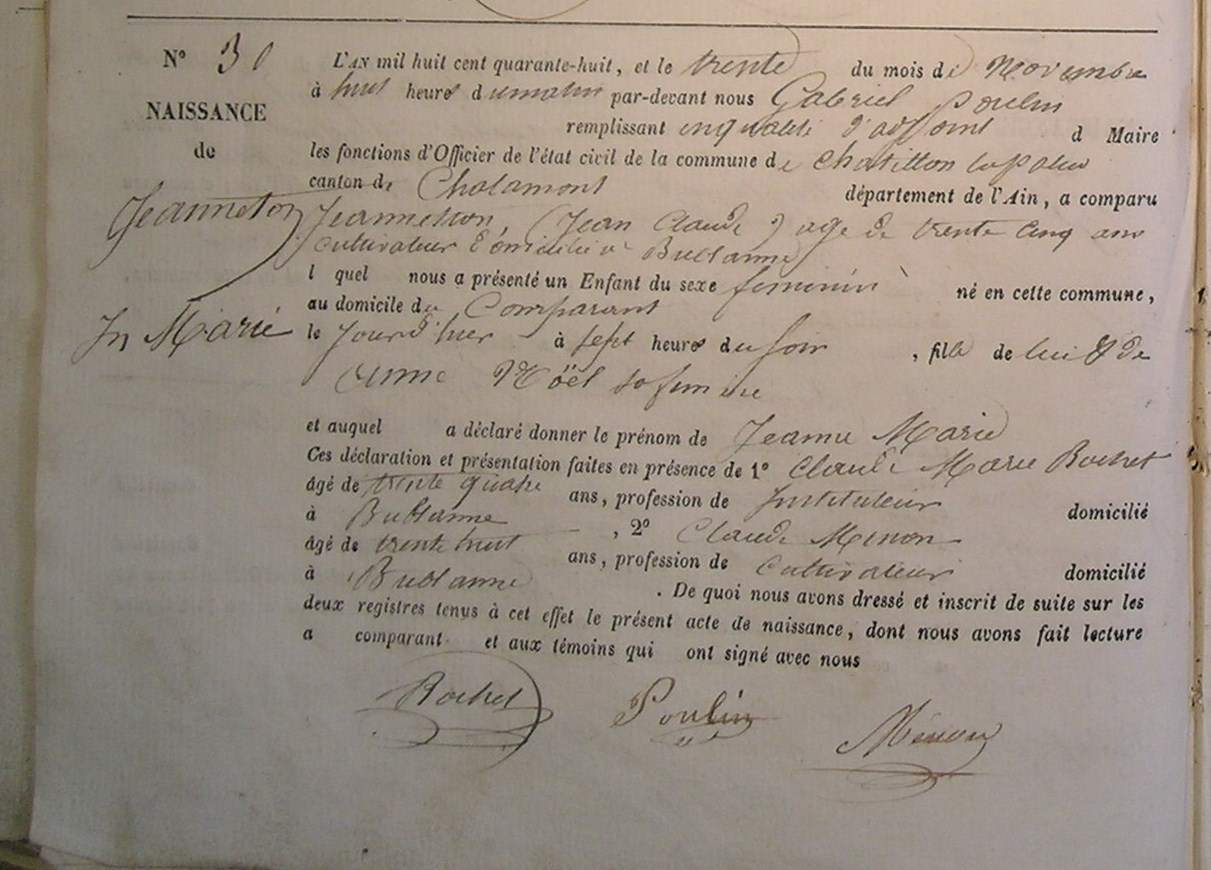 N° 30
NAISSANCE
de
Jeanneton
Jn Marie
L'AN mil huit cent quarante-huit, et le trente du mois de Novembre
à huit heures du matin par-devant nous Gabriel Poulin
remplissant en qualité d'adjoint d Maire
les fonctions d'Officier de l'état civil de la commune de Chatillon la palud
canton de Chalamont département de l'Ain, a comparu
Jeanneton, (Jean Claude) age de trente cinq ans
cultivateur domicilié à Bublanne
l quel nous a présenté un Enfant du sexe feminin né en cette commune,
au domicile du Comparant
le jour d'hier à sept heures du soir, fille de lui & de
anne Noël sa femme
et auquel a déclaré donner le prénom de Jeanne Marie
Ces déclaration et présentation faites en présence de 1° Claude Marie Rochet
âgé de trente quatre ans, profession de Instituteur domicilié
à Bublanne, 2° Claude Menon
âgé de trente huit ans, profession de Cultivateur domicilié
à Bublanne. De quoi nous avons dressé et inscrit de suite sur les
deux registres tenus à cet effet le présent acte de naissance, dont nous avons fait lecture
a comparant et aux témoins qui ont signé avec nous
Rochet Poulin Ménon